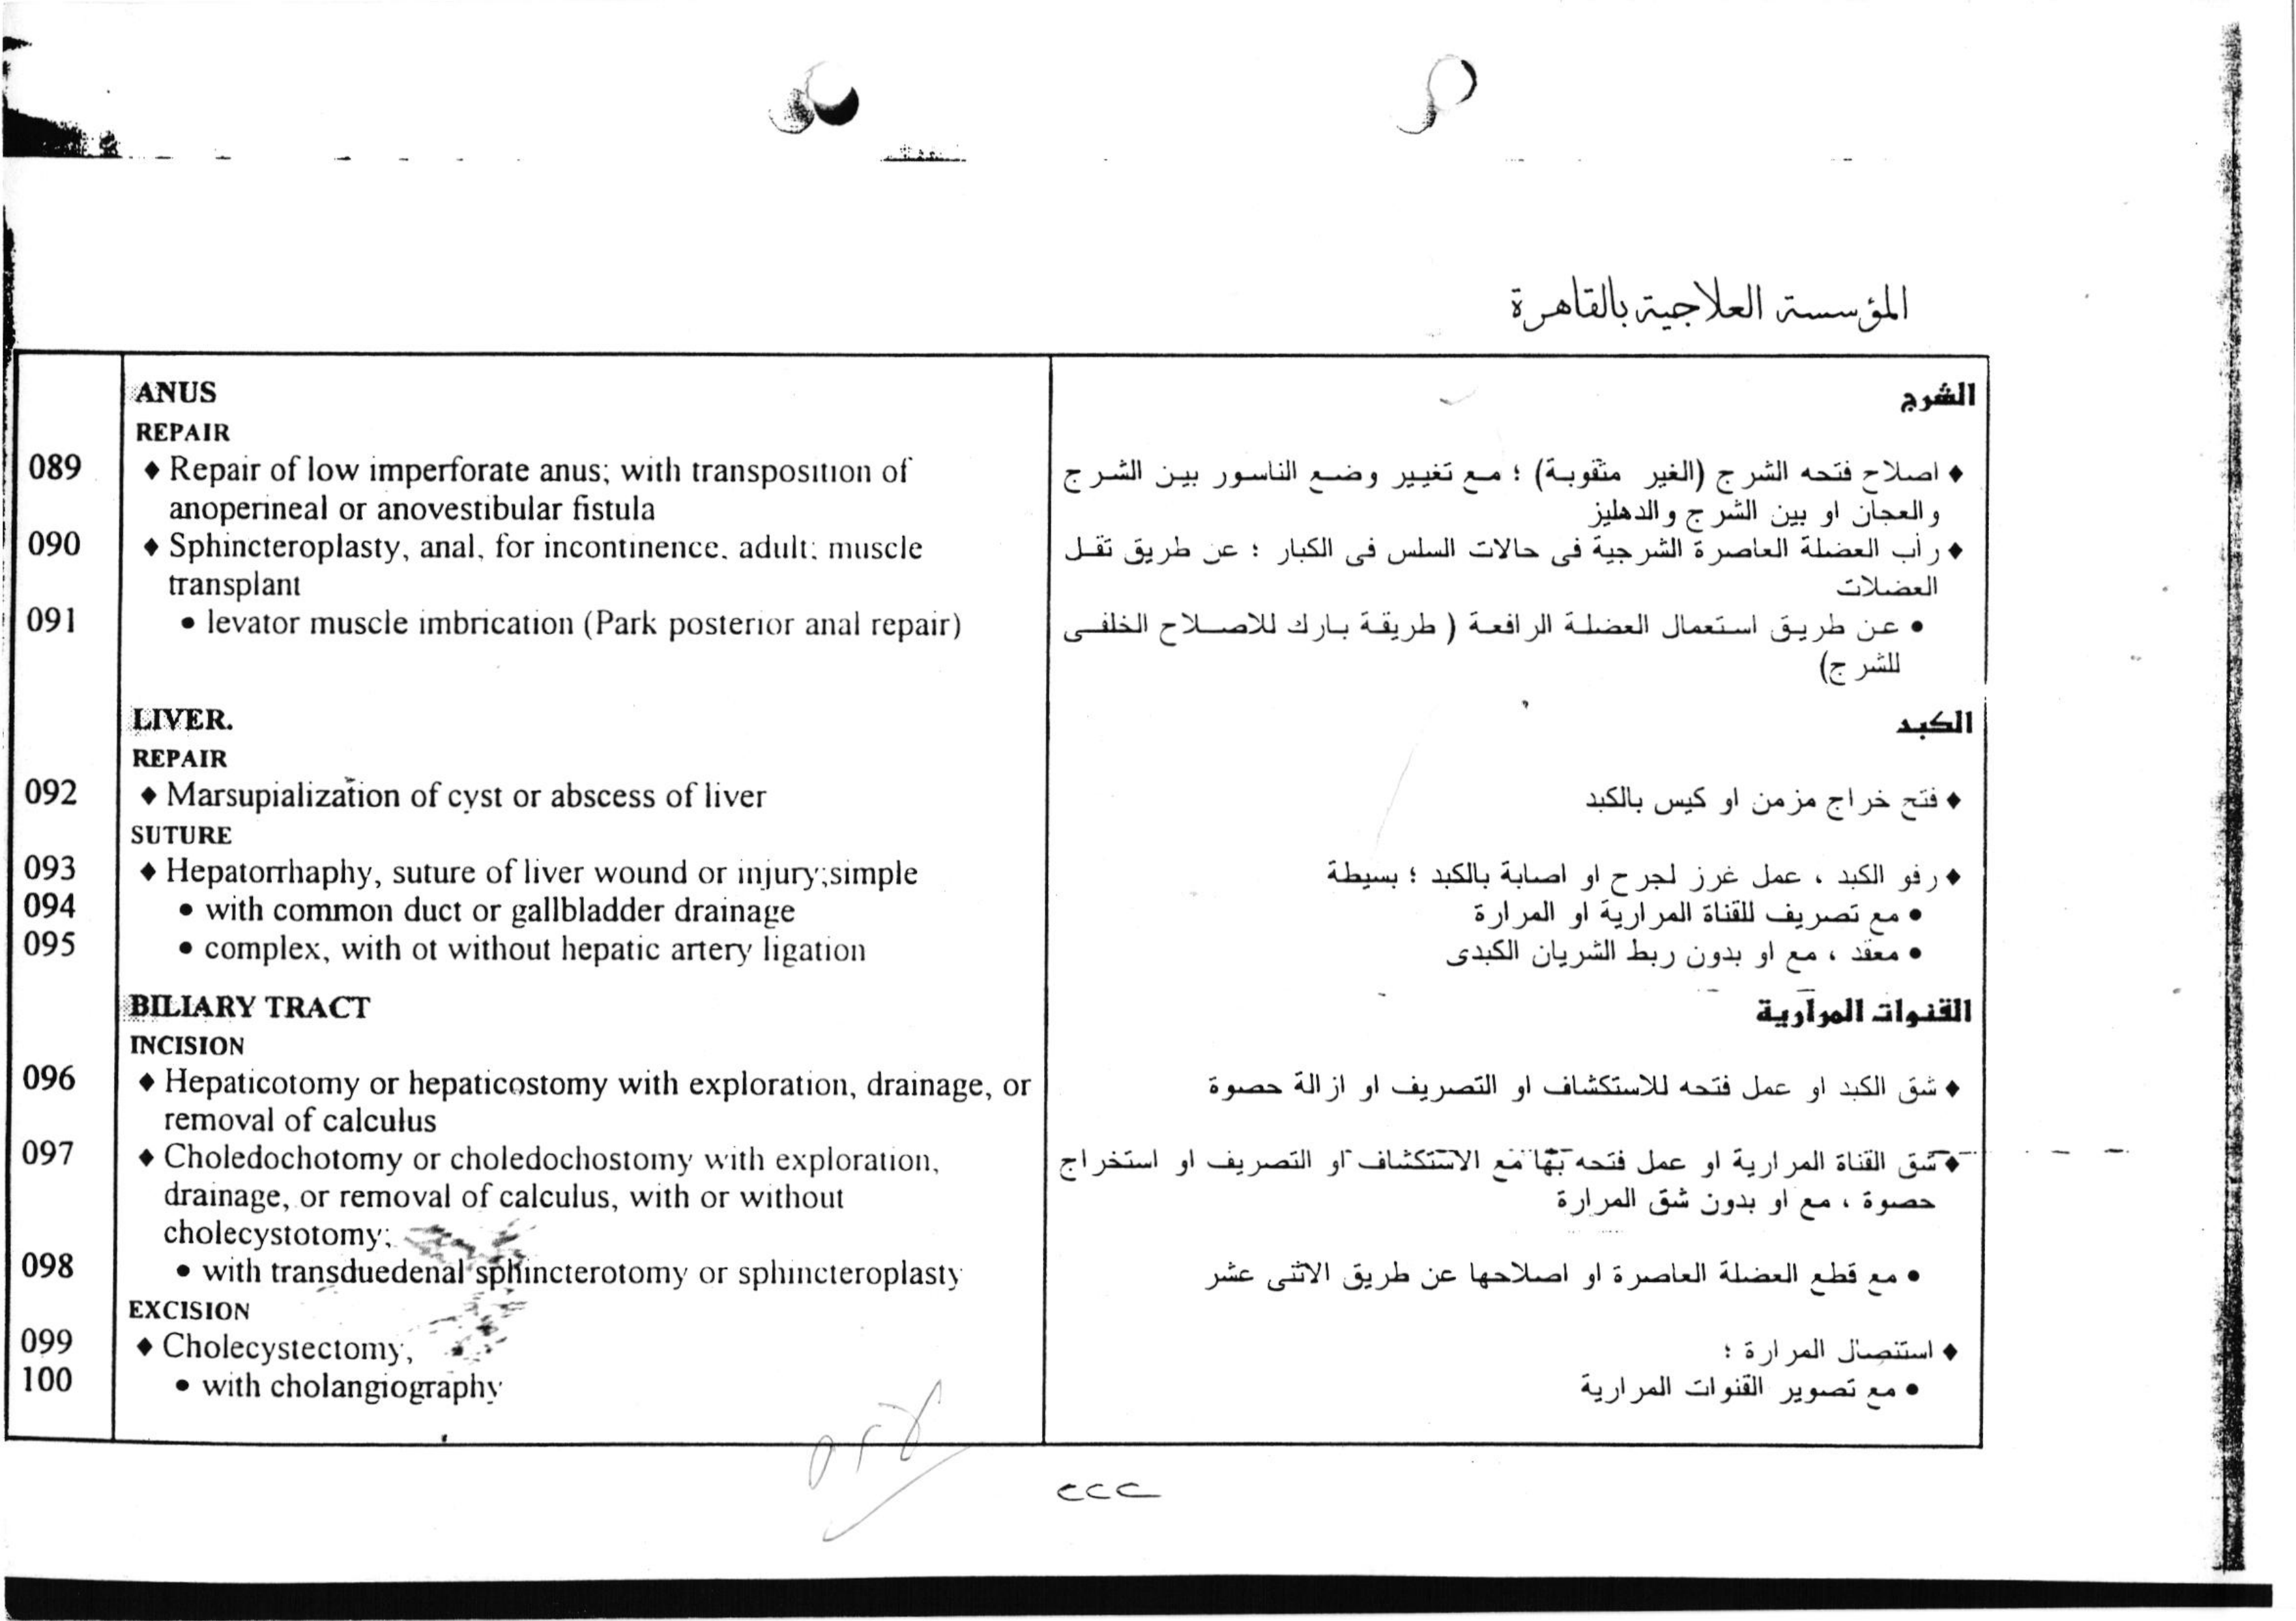 المؤسسة العلاجية بالقاهرة
ANUS
الشرج
REPAIR
089 ♦ Repair of low imperforate anus; with transposition of
anoperineal or anovestibular fistula
♦ اصلاح فتحه الشرج (الغير مثقوبة) ؛ مع تغيير وضع الناسور بين الشرج
والعجان او بين الشرج والدهليز
090 ♦ Sphincteroplasty, anal, for incontinence. adult: muscle
transplant
♦ رأب العضلة العاصرة الشرجية فى حالات السلس فى الكبار ؛ عن طريق نقل
العضلات
091 • levator muscle imbrication (Park posterior anal repair)
• عن طريق استعمال العضلة الرافعة ( طريقة بارك للاصلاح الخلفى
للشرج)
LIVER.
الكبد
REPAIR
092 ♦ Marsupialization of cyst or abscess of liver
♦ فتح خراج مزمن او كيس بالكبد
SUTURE
093 ♦ Hepatorrhaphy, suture of liver wound or injury;simple
♦ رفو الكبد ، عمل غرز لجرح او اصابة بالكبد ؛ بسيطة
094 • with common duct or gallbladder drainage
• مع تصريف للقناة المرارية او المرارة
095 • complex, with ot without hepatic artery ligation
• معقد ، مع او بدون ربط الشريان الكبدى
BILIARY TRACT
القنوات المرارية
INCISION
096 ♦ Hepaticotomy or hepaticostomy with exploration, drainage, or
removal of calculus
♦ شق الكبد او عمل فتحه للاستكشاف او التصريف او ازالة حصوة
097 ♦ Choledochotomy or choledochostomy with exploration,
drainage, or removal of calculus, with or without
cholecystotomy;
♦ شق القناة المرارية او عمل فتحه بها مع الاستكشاف او التصريف او استخراج
حصوة ، مع او بدون شق المرارة
098 • with transduedenal sphincterotomy or sphincteroplasty
• مع قطع العضلة العاصرة او اصلاحها عن طريق الاثنى عشر
EXCISION
099 ♦ Cholecystectomy;
♦ استئصال المرارة ؛
100 • with cholangiography
• مع تصوير القنوات المرارية